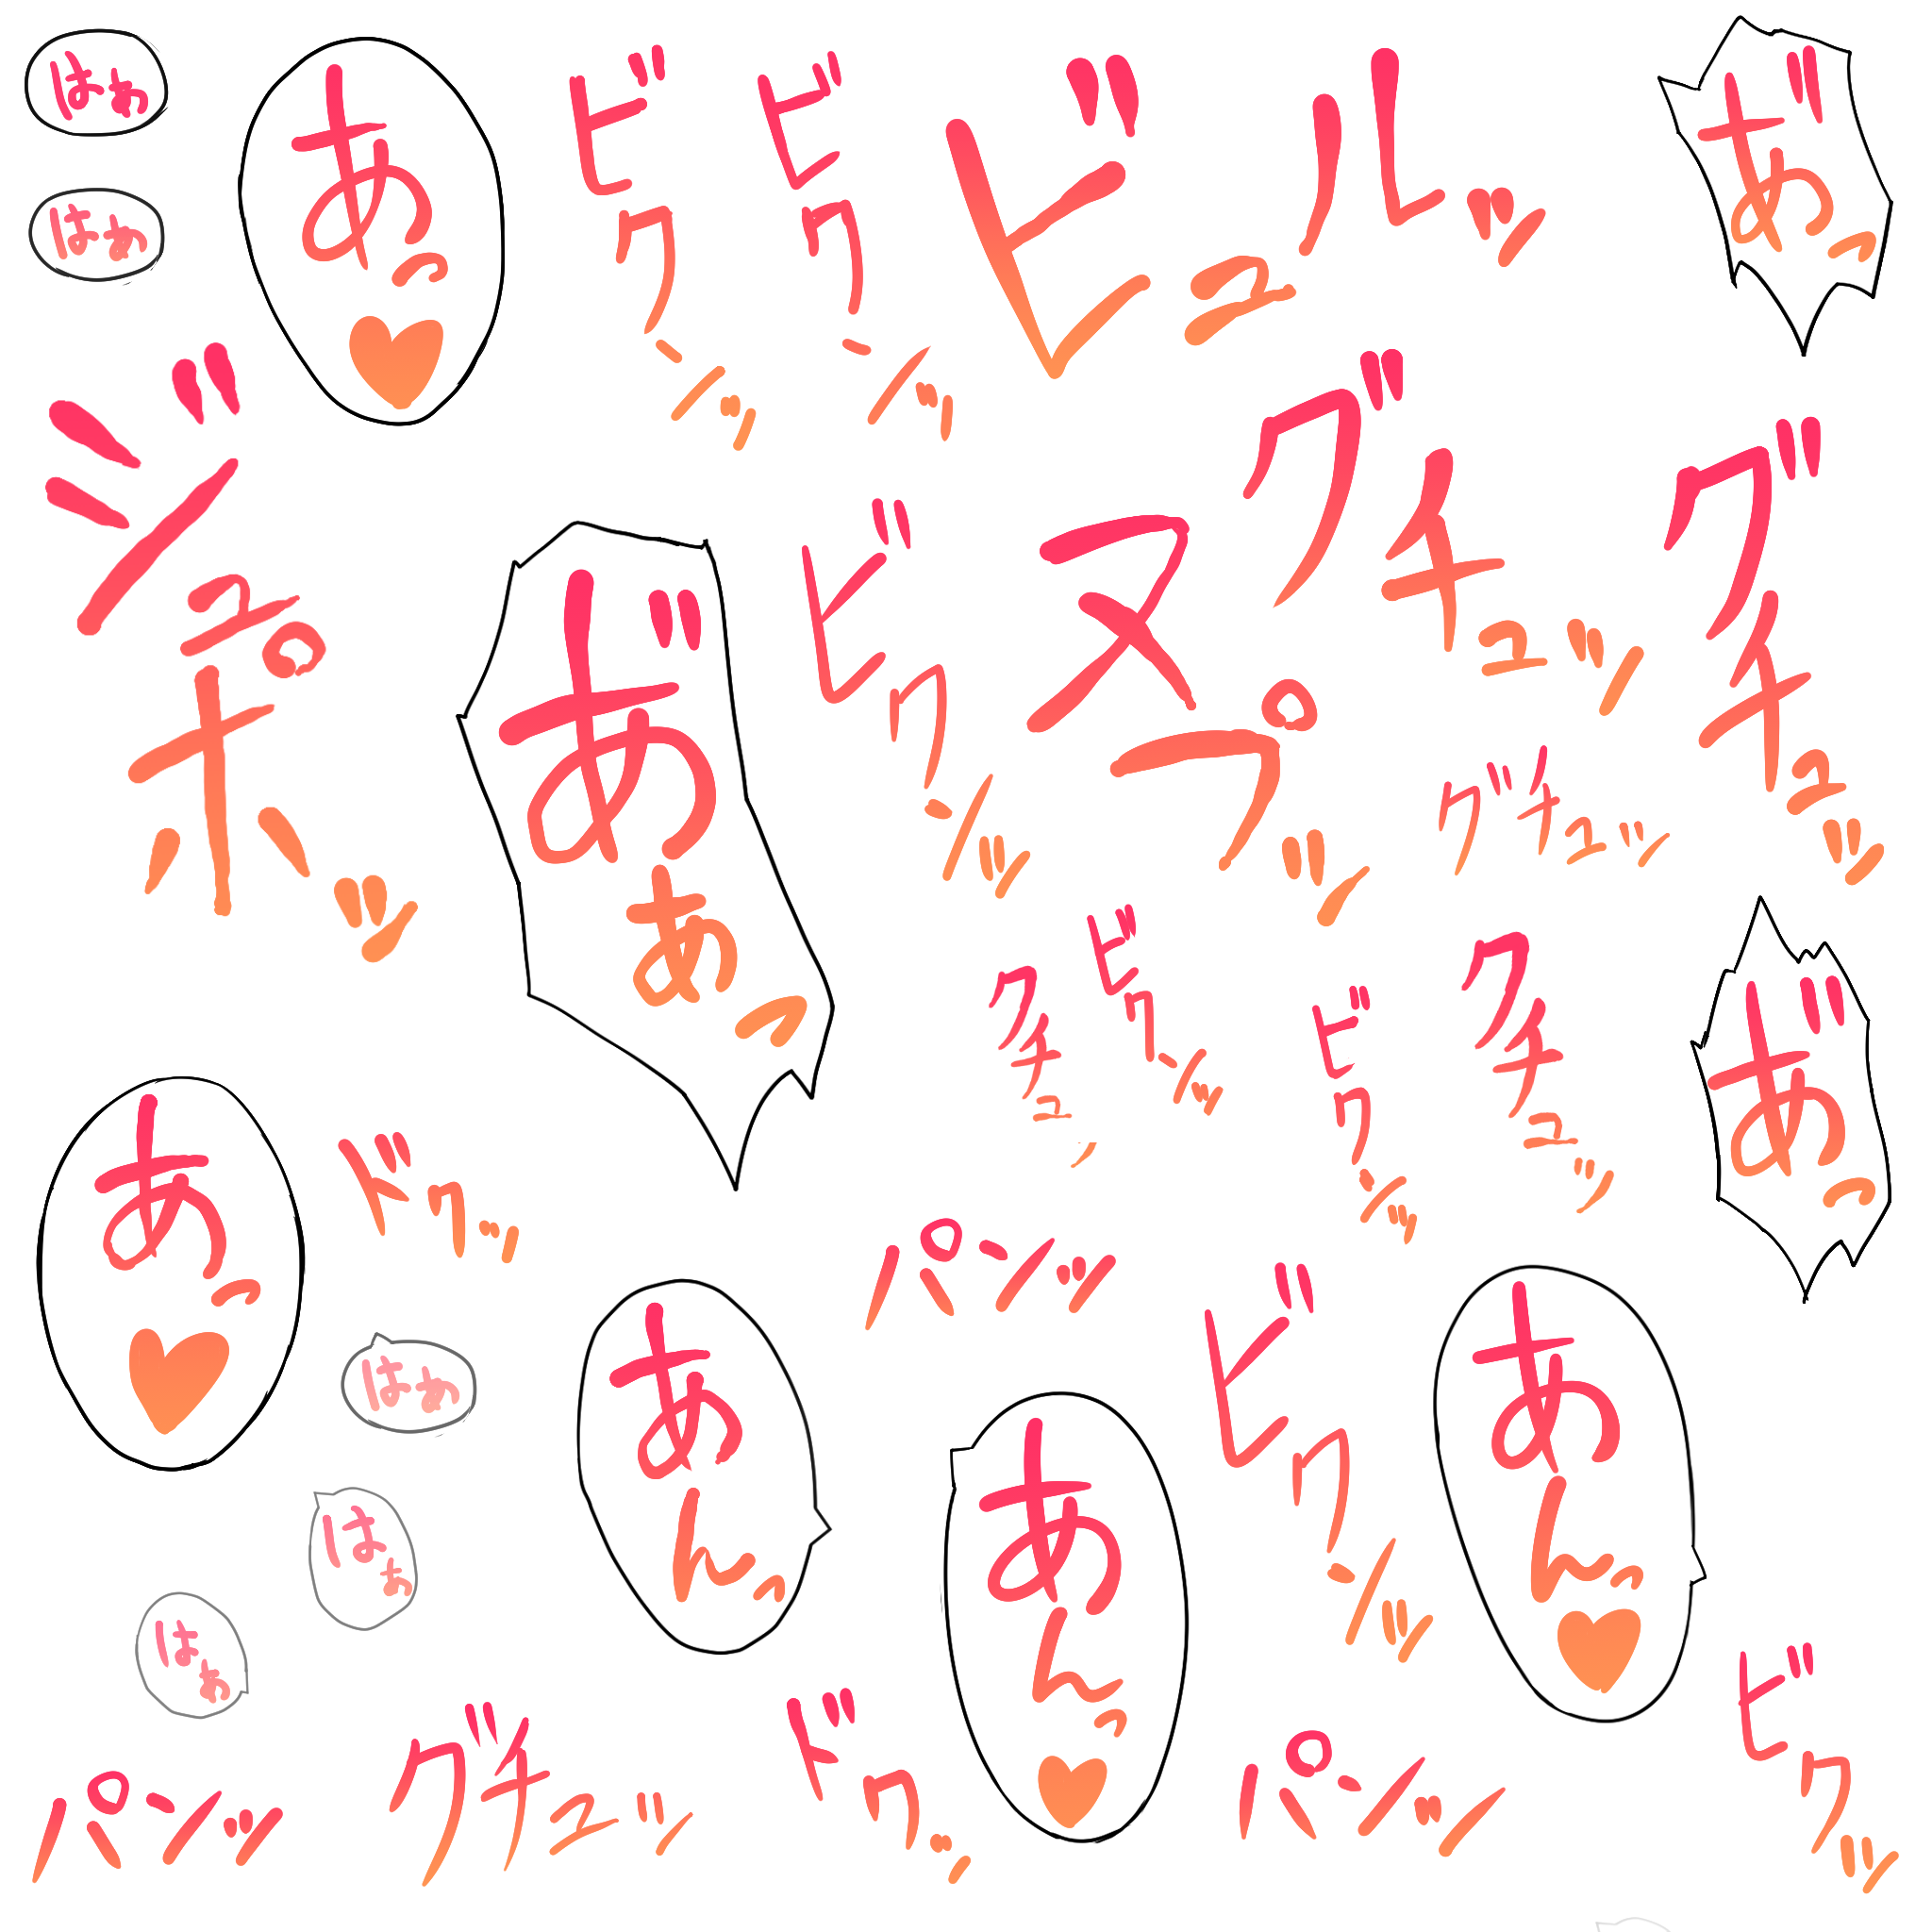 はぁ
はぁ
あっ♥
ビクンッ
ビクンッ
ビュルルッ
あ゛っ
ジュポッ
あ゛あっ
ビクンッ
ヌプッ
グチュッ
グチュッ
グチュッ
クチュッ
ビクンッ
ビクンッ
クチュッ
あ゛っ
あっ♥
ドクッ
はぁ
はぁ
はぁ
あんっ
パンッ
あんっ♥
ビクンッ
あんっ♥
パンッ
グチュッ
ドクッ
パンッ
ビクッ